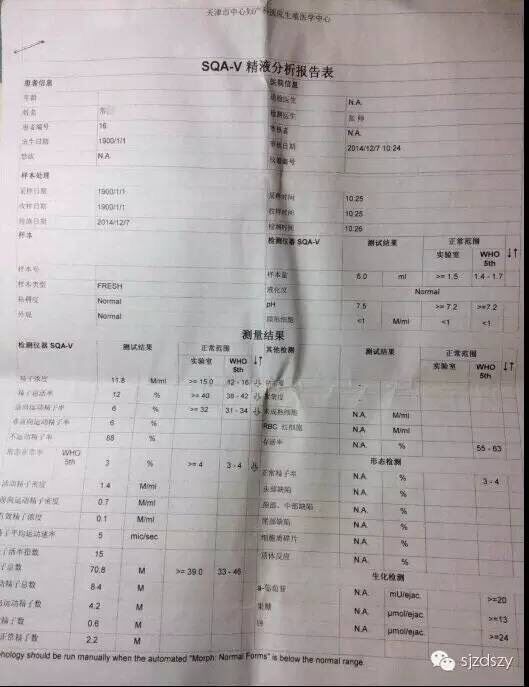 天津市中心妇产科医院生殖医学中心
SQA-V 精液分析报告表
患者信息 医院信息
年龄 送检医生 N.A.
姓名 检测医生
患者编号 16 审核者 N.A.
出生日期 1900/1/1 审核日期 2014/12/7 10:24
禁欲 N.A. 仪器编号
样本处理
采样日期 1900/1/1 采样时间 10:25
收样日期 1900/1/1 收样时间 10:25
检测日期 2014/12/7 检测时间 10:26
样本 检测仪器 SQA-V 测试结果 正常范围
实验室 WHO 5th ↓↑
样本号 样本量 6.0 ml >= 1.5 1.4 - 1.7
样本类型 FRESH 液化度 Normal
粘稠度 Normal pH 7.5 >= 7.2 >=7.2
外观 Normal <1 M/ml <1 <1
测量结果
检测仪器 SQA-V 测试结果 正常范围 其他检测 测试结果 正常范围
实验室 WHO 5th ↓↑ 实验室 WHO 5th ↓↑
精子浓度 11.8 M/ml >= 15.0 12 - 16
精子活动率 12 % >= 40 38 - 42
前向运动精子率 6 % >= 32 31 - 34 未成熟细胞 N.A. M/ml
非前向运动精子率 6 % RBC 红细胞 N.A. M/ml
不运动精子率 88 % 存活率 N.A. % 55 - 63
形态正常率 WHO 5th 3 % >= 4 3 - 4 形态检测
正常精子率 N.A. % 3 - 4
活动精子密度 1.4 M/ml 头部缺陷 N.A. %
前向运动精子密度 0.7 M/ml 颈部、中部缺陷 N.A. %
有效精子浓度 0.1 M/ml 尾部缺陷 N.A. %
精子平均运动速率 5 mic/sec 细胞质碎片 N.A. %
精子活率指数 15 顶体反应 N.A. %
子总数 70.8 M >= 39.0 33 - 46 生化检测
动精子总数 8.4 M a-葡萄苷 N.A. mU/ejac. >=20
运动精子数 4.2 M 果糖 N.A. µmol/ejac. >=13
精子数 0.6 M N.A. µmol/ejac. >=24
正常精子数 2.2 M
phology should be run manually when the automated "Morph. Normal Forms" is below the normal range.
sjzdszy